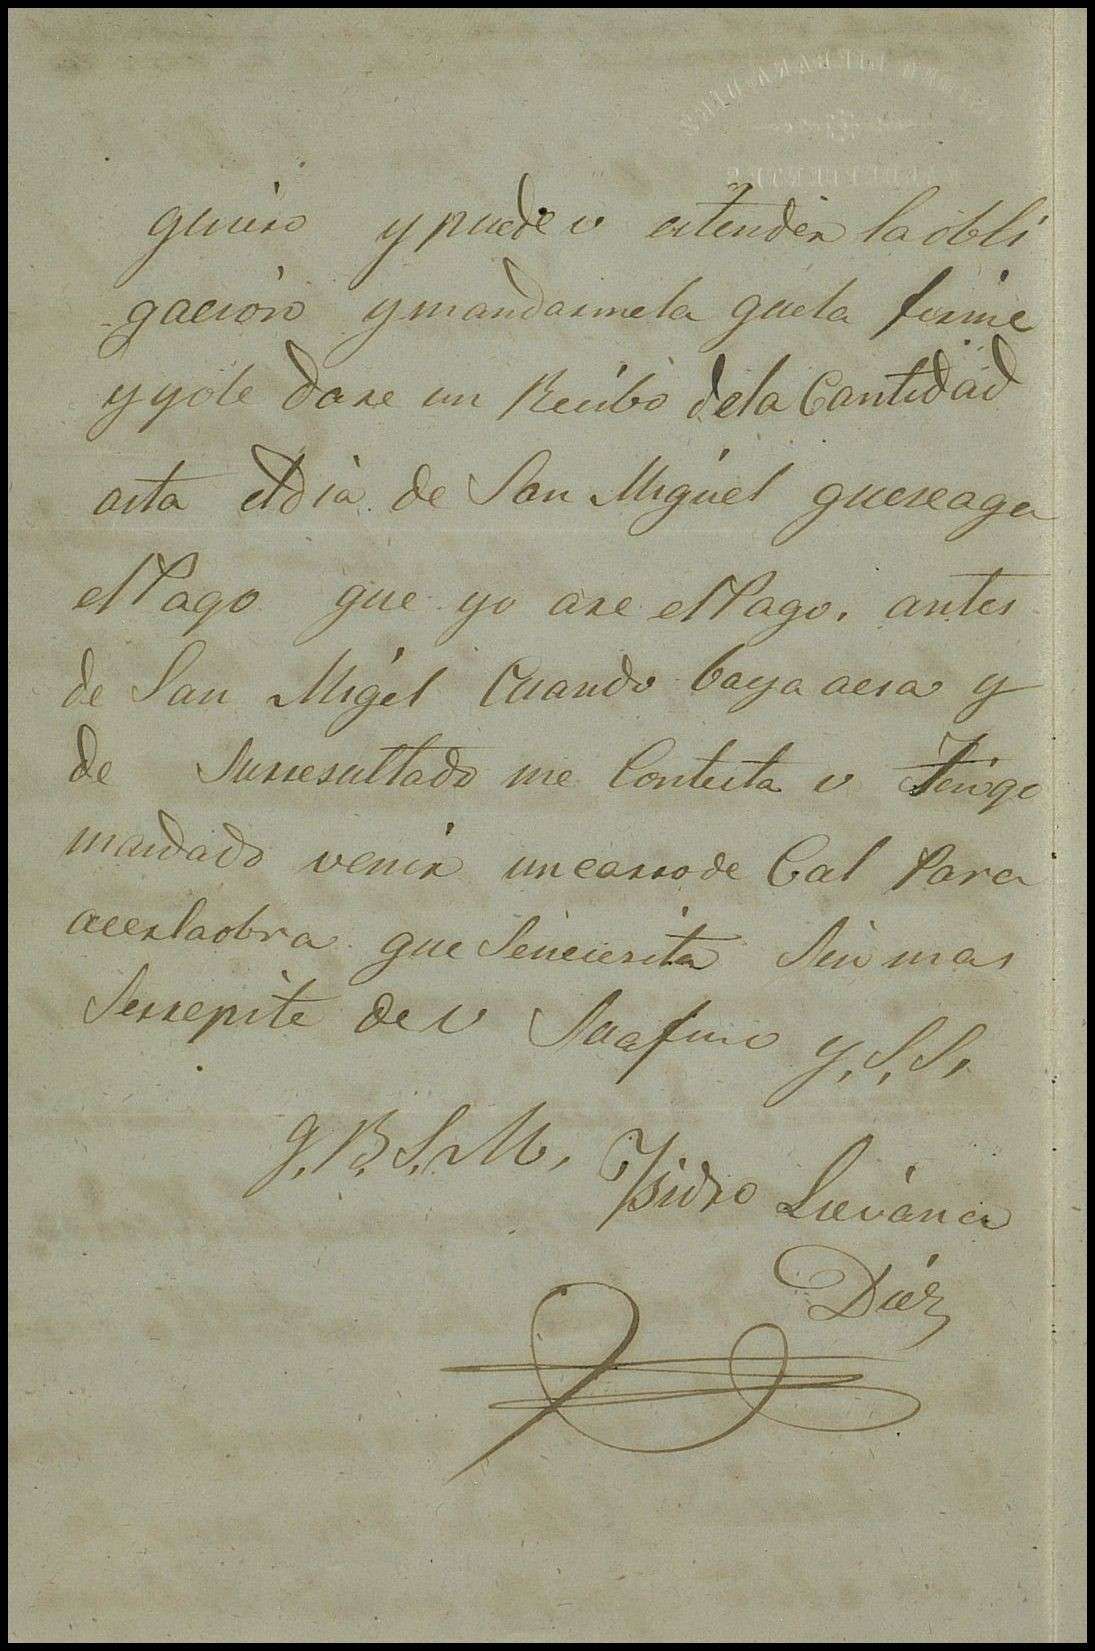 quiero y puede v estender la obli
gación y mandarmela quela firme
y yole dare un Recibo dela Cantidad
asta eldia de San Miguel queseaga
el Pago que yo are el Pago. antes
de San Migel Cuando baya aesa y
de Surresultado me Contesta v Tengo
mandado venir uncarrode Cal Para
acerlaobra que Senecesita Sin mas
Serrepite de v Suafmo y, S, S,
q, B, S, M, Ysidro Lievana
Diéz